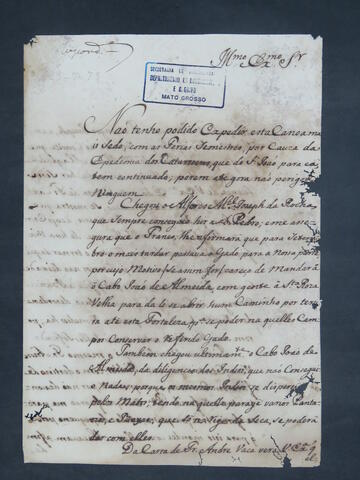 Respond.
Illmo. Exmo. Sr.
SECRETARIA DE
DEPARTAMENTO DE
E
MATO GROSSO
Não tenho podido Expedir esta Canoa ma
is Sedo, com as Terias Semestres, por Cauza da
Epedemia dos Catarroens, que de S. João para ca
tem continuado; porem ate gora não perigou
Ninguem.
Chegou o Alferes Mel. Joseph da Rocha,
que Sempre conceguio hir a S. Pedro; e me asse
gura que o Franco. lhe afirmara que para Setem
bro o mais tardar passava o Gado para a Nossa parte
por cujo Motivo se asim for careço de Mandar á
o Cabo Joze de Almeida, com gente á Sta. Roza
Velha para da li se abrir hum Caminho por terra
ate esta Fortaleza, pa. se poder na quelles Cam
pos Conservar o Refirido Gado.
Tambem chegou ultimamte. o Cabo Joze de
Almeida, da deligencia dos Indios, que não Consegui
o Nada; porque os mesmos Indios se dispersa
pelos Matos, tendo na quella paraje varios Panta
nos, e Piripiz, que só no Rigor da Seca, se poderá
dar com elles.
Da Carta de Fr. Andre Vaca verá V. Exa. q